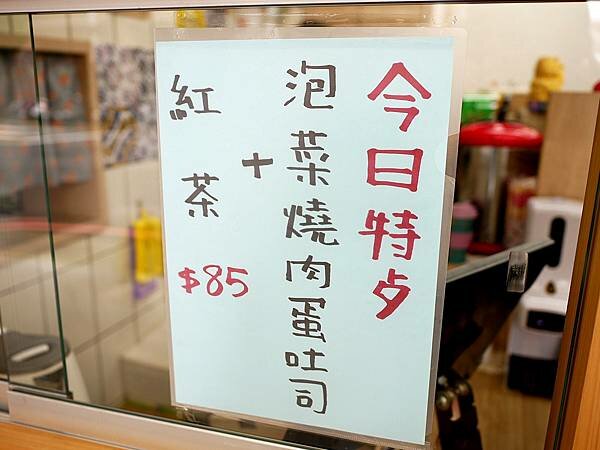 今日特歺
泡菜燒肉蛋吐司
+
紅茶
$85